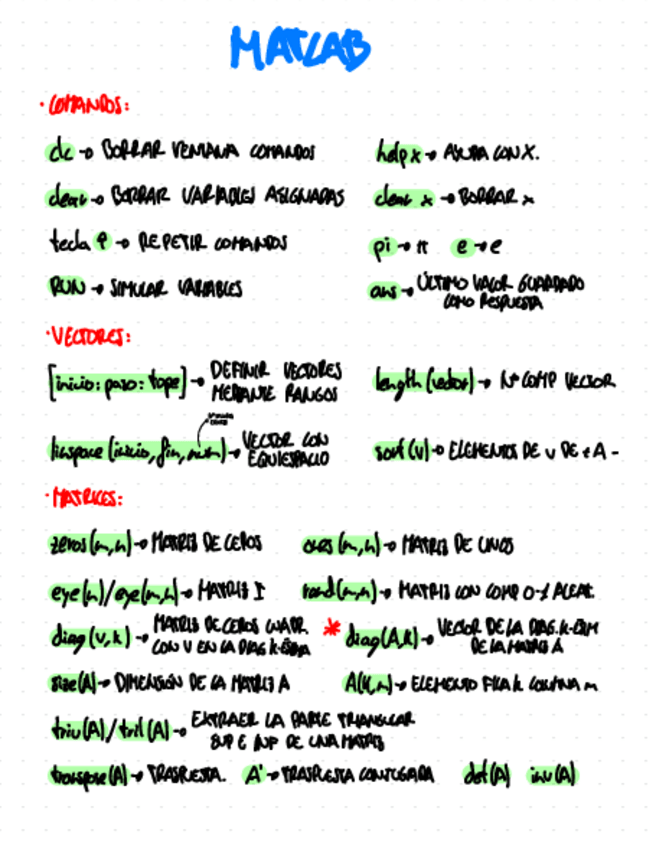 MATLAB
· COMANDOS:
clc → BORRAR VENTANA COMANDOS
help x → AYUDA CON X.
clear → BORRAR VARIABLES ASIGNADAS
clear x → BORRAR x
tecla ↑ → REPETIR COMANDOS
pi → π e → e
RUN → SIMULAR VARIABLES
ans → ÚLTIMO VALOR GUARDADO
COMO RESPUESTA
· VECTORES:
[inicio: paso: tope] → DEFINIR VECTORES
MEDIANTE RANGOS
length (vector) → Nº COMP VECTOR
linspace (inicio, fin, num) → VECTOR CON
EQUIESPACIO
sort (v) → ELEMENTOS DE v DE + A -
· MATRICES:
zeros (m,n) → MATRIZ DE CEROS
ones (m,n) → MATRIZ DE UNOS
eye (n) / eye (m,n) → MATRIZ I
rand (m,n) → MATRIZ CON COMP 0-1 ALEAT.
diag (v,k) → MATRIZ DE CEROS CUADR.
CON V EN LA DIAG K-ÉSIMA
* diag (A,k) → VECTOR DE LA DIAG. K-ÉSIM
DE LA MATRIZ A
size (A) → DIMENSIÓN DE LA MATRIZ A
A(k,m) → ELEMENTO FILA k COLUMNA m
triu (A) / tril (A) → EXTRAER LA PARTE TRIANGULAR
SUP E INF DE UNA MATRIZ
transpose (A) → TRASPUESTA.
A' → TRASPUESTA CONJUGADA
det (A) inv (A)